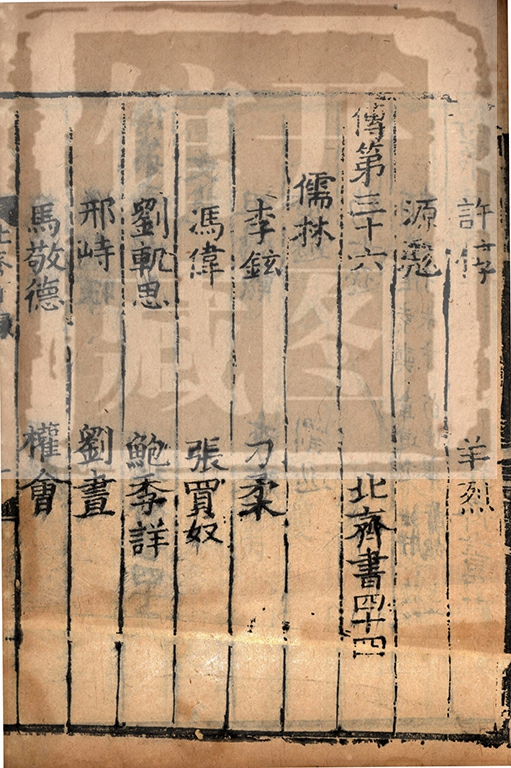 許惇 羊烈
源彪
傳第三十六 北齊書四十四
儒林
李鉉 刁柔
馮偉 張買奴
劉軌思 鮑季詳
邢峙 劉晝
馬敬德 權會